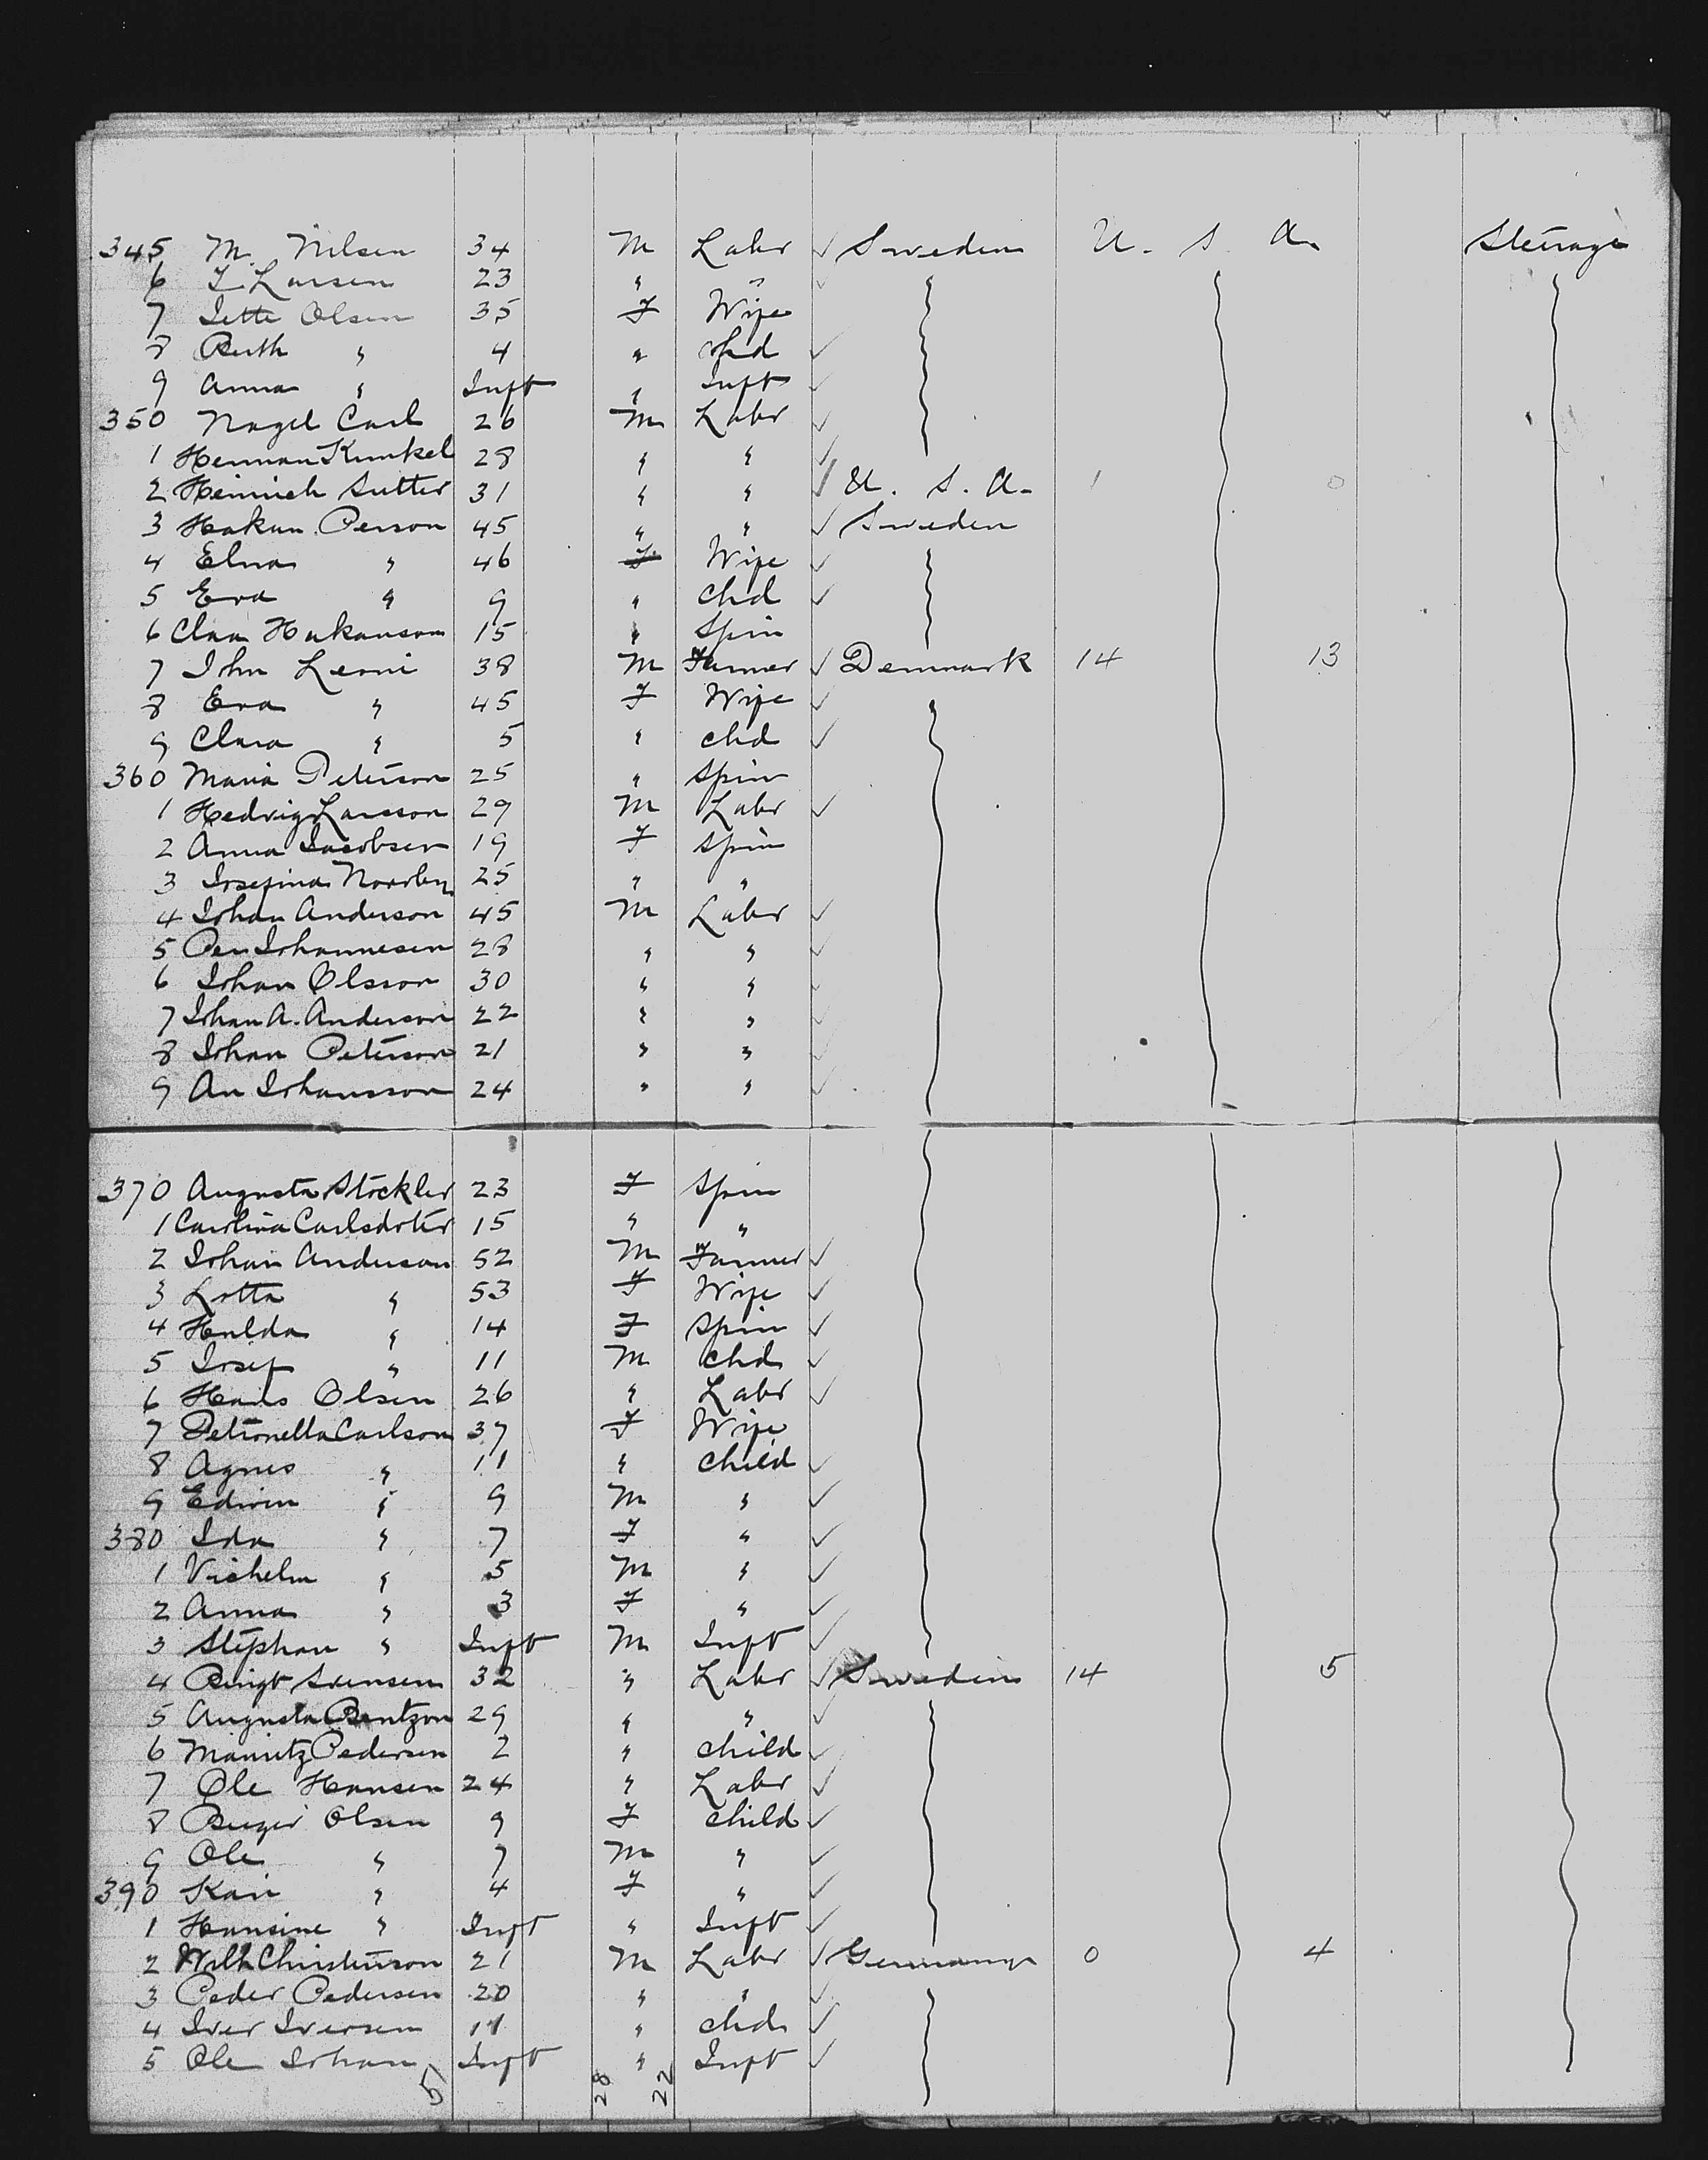 345 M. Nilsen 34 M Labr ✓ Sweden U. S. A. Steerage
6 T Larsen 23 " " ✓
7 Jette Olsen 35 F Wife
8 Ruth " 4 " Chd ✓
9 Anna " Inft " Inft ✓
350 Nagel Carl 26 M Labr ✓
1 Herman Kunkel 28 " " ✓
2 Heinrich Sutter 31 " " ✓ U. S. A. 1 0
3 Hakan Person 45 " " ✓ Sweden
4 Elna " 46 F Wife ✓
5 Eva " 9 " Chd ✓
6 Clara Hakanson 15 " Spin
7 John Leoni 38 M Farmer ✓ Denmark 14 13
8 Eva " 45 F Wife ✓
9 Clara " 5 " chd ✓
360 Maria Peterson 25 " Spin
1 Hedvig Larsson 29 M Labr ✓
2 Anna Jacobsen 19 F Spin
3 Josefina Norrby 25 " "
4 Johan Anderson 45 M Labr ✓
5 Per Johannesen 28 " " ✓
6 Johan Olsson 30 " " ✓
7 Johan A. Anderson 22 " " ✓
8 Johan Peterson 21 " " ✓
9 An Johansson 24 " " ✓
370 Augusta Stockler 23 F Spin
1 Carolina Carlsdoter 15 " "
2 Johan Anderson 52 M Farmer ✓
3 Lotta " 53 F Wife ✓
4 Hulda " 14 F Spin ✓
5 Josef " 11 M Chd ✓
6 Hans Olsen 26 " Labr ✓
7 Petronella Carlson 37 F Wife
8 Agnes " 11 " Child ✓
9 Edwin " 9 M " ✓
380 Ida " 7 F " ✓
1 Vichelm " 5 M " ✓
2 Anna " 3 F " ✓
3 Stephan " Inft M Inft ✓
4 Bengt Svensen 32 " Labr ✓ Sweden 14 5
5 Augusta Bentzon 29 " " ✓
6 Mauritz Pedersen 2 " child ✓
7 Ole Hansen 24 " Labr ✓
8 Birger Olsen 9 F child ✓
9 Ole " 7 M " ✓
390 Kari " 4 F " ✓
1 Hansine " Inft " Inft ✓
2 Wilh Christenson 21 M Labr ✓ Germany 0 4
3 Peder Pedersen 20 " " ✓
4 Iver Iversen 11 " chd ✓
5 Ole Johan Inft " Inft ✓
51 28 22